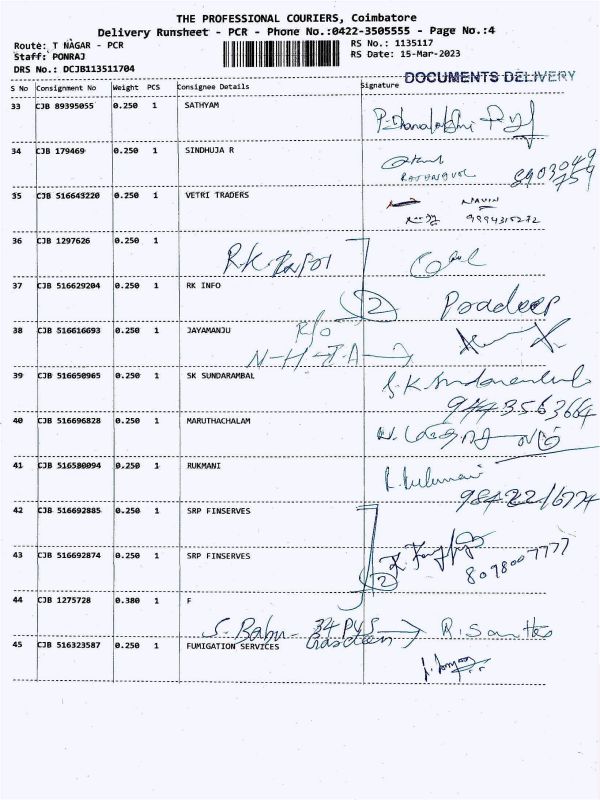 THE PROFESSIONAL COURIERS, Coimbatore
Delivery Runsheet - PCR - Phone No.:0422-3505555 - Page No.:4
Route: T NAGAR - PCR
RS No.: 1135117
Staff: PONRAJ
RS Date: 15-Mar-2023
DRS No.: DCJB113511704
DOCUMENTS DELIVERY
S No Consignment No Weight PCS Consignee Details Signature
33 CJB 89395055 0.250 1 SATHYAM
34 CJB 179469 0.250 1 SINDHUJA R
8903049
759
35 CJB 516643220 0.250 1 VETRI TRADERS
NAVIN
36 CJB 1297626 0.250 1
37 CJB 516629204 0.250 1 RK INFO
2 Pradeep
38 CJB 516616693 0.250 1 JAYAMANJU
R/o
39 CJB 516650965 0.250 1 SK SUNDARAMBAL
S.K.Sundarambal
9443563664
40 CJB 516696828 0.250 1 MARUTHACHALAM
41 CJB 516580094 0.250 1 RUKMANI
R. Rukmani
42 CJB 516692885 0.250 1 SRP FINSERVES
43 CJB 516692874 0.250 1 SRP FINSERVES
2 8098007777
44 CJB 1275728 0.380 1 F
S. Babu - 34
45 CJB 516323587 0.250 1 FUMIGATION SERVICES